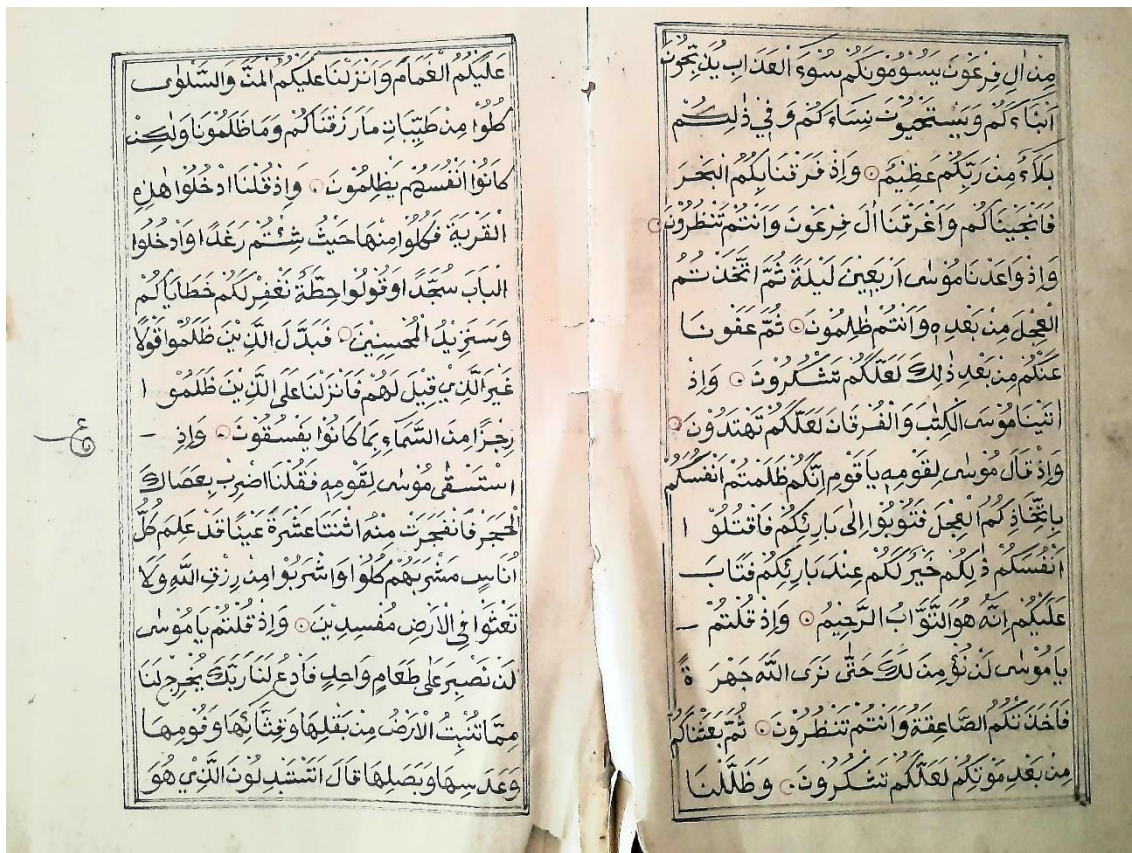 مِنْ اٰلِ فِرْعَوْنَ يَسُوْمُوْنَكُمْ سُوْءَ الْعَذَابِ يُذَبِّحُوْنَ
اَبْنَاءَكُمْ وَيَسْتَحْيُوْنَ نِسَاءَكُمْ وَفِيْ ذٰلِكُمْ
بَلَاءٌ مِنْ رَبِّكُمْ عَظِيْمٌ وَاِذْ فَرَقْنَا بِكُمُ الْبَحْرَ
فَاَنْجَيْنَاكُمْ وَاَغْرَقْنَا اٰلَ فِرْعَوْنَ وَاَنْتُمْ تَنْظُرُوْنَ
وَاِذْ وَاعَدْنَا مُوْسٰى اَرْبَعِيْنَ لَيْلَةً ثُمَّ اتَّخَذْتُمُ
الْعِجْلَ مِنْ بَعْدِهٖ وَاَنْتُمْ ظٰلِمُوْنَ ثُمَّ عَفَوْنَا
عَنْكُمْ مِنْ بَعْدِ ذٰلِكَ لَعَلَّكُمْ تَشْكُرُوْنَ وَاِذْ
اٰتَيْنَا مُوْسَى الْكِتٰبَ وَالْفُرْقَانَ لَعَلَّكُمْ تَهْتَدُوْنَ
وَاِذْ قَالَ مُوْسٰى لِقَوْمِهٖ يَاقَوْمِ اِنَّكُمْ ظَلَمْتُمْ اَنْفُسَكُمْ
بِاتِّخَاذِكُمُ الْعِجْلَ فَتُوْبُوْا اِلٰى بَارِئِكُمْ فَاقْتُلُوْا
اَنْفُسَكُمْ ذٰلِكُمْ خَيْرٌ لَكُمْ عِنْدَ بَارِئِكُمْ فَتَابَ
عَلَيْكُمْ اِنَّهُ هُوَ التَّوَّابُ الرَّحِيْمُ وَاِذْ قُلْتُمْ
يَامُوْسٰى لَنْ نُؤْمِنَ لَكَ حَتّٰى نَرَى اللّٰهَ جَهْرَةً
فَاَخَذَتْكُمُ الصَّاعِقَةُ وَاَنْتُمْ تَنْظُرُوْنَ ثُمَّ بَعَثْنَاكُمْ
مِنْ بَعْدِ مَوْتِكُمْ لَعَلَّكُمْ تَشْكُرُوْنَ وَظَلَّلْنَا
عَلَيْكُمُ الْغَمَامَ وَاَنْزَلْنَا عَلَيْكُمُ الْمَنَّ وَالسَّلْوٰى
كُلُوْا مِنْ طَيِّبَاتِ مَا رَزَقْنَاكُمْ وَمَا ظَلَمُوْنَا وَلٰكِنْ
كَانُوْا اَنْفُسَهُمْ يَظْلِمُوْنَ وَاِذْ قُلْنَا ادْخُلُوْا هٰذِهِ
الْقَرْيَةَ فَكُلُوْا مِنْهَا حَيْثُ شِئْتُمْ رَغَدًا وَادْخُلُوا
الْبَابَ سُجَّدًا وَقُوْلُوْا حِطَّةٌ نَغْفِرْ لَكُمْ خَطَايَاكُمْ
وَسَنَزِيْدُ الْمُحْسِنِيْنَ فَبَدَّلَ الَّذِيْنَ ظَلَمُوْا قَوْلًا
غَيْرَ الَّذِيْ قِيْلَ لَهُمْ فَاَنْزَلْنَا عَلَى الَّذِيْنَ ظَلَمُوْا
رِجْزًا مِنَ السَّمَاءِ بِمَا كَانُوْا يَفْسُقُوْنَ وَاِذِ
اسْتَسْقٰى مُوْسٰى لِقَوْمِهٖ فَقُلْنَا اضْرِبْ بِعَصَاكَ
الْحَجَرَ فَانْفَجَرَتْ مِنْهُ اثْنَتَا عَشْرَةَ عَيْنًا قَدْ عَلِمَ كُلُّ
اُنَاسٍ مَشْرَبَهُمْ كُلُوْا وَاشْرَبُوْا مِنْ رِزْقِ اللّٰهِ وَلَا
تَعْثَوْا فِي الْاَرْضِ مُفْسِدِيْنَ وَاِذْ قُلْتُمْ يَامُوْسٰى
لَنْ نَصْبِرَ عَلٰى طَعَامٍ وَاحِدٍ فَادْعُ لَنَا رَبَّكَ يُخْرِجْ لَنَا
مِمَّا تُنْبِتُ الْاَرْضُ مِنْ بَقْلِهَا وَقِثَّائِهَا وَفُوْمِهَا
وَعَدَسِهَا وَبَصَلِهَا قَالَ اَتَسْتَبْدِلُوْنَ الَّذِيْ هُوَ